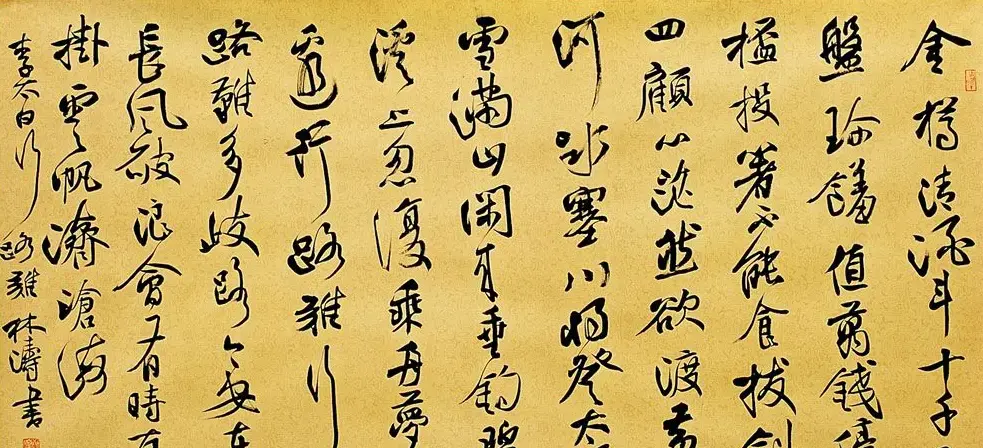 金樽清酒斗十千
盤珍饈值萬錢停
桮投箸不能食拔劍
四顧心茫然欲渡黃
河冰塞川將登太
雪滿山閑來垂釣碧
溪上忽復乘舟夢
邊行路難行
路難多岐路今安在
長風破浪會有時直
掛雲帆濟滄海
李太白行路難林濤書